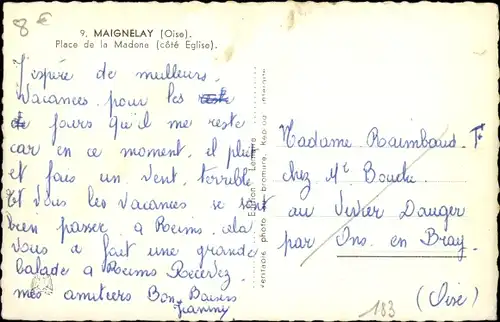 8 €
9. MAIGNELAY (Oise).
Place de la Madone (côté Eglise).
J'espère de meilleurs
vacances pour les
jours qu'il me reste
car en ce moment, il pleut
et fais un vent, terrible
Et vous les vacances se sont
bien passer, a Reims, cela
vous a fait une grande
balade a Reims Recevez
mes amitiers Bon Baisers
Jeanine
Edition Lemaire
véritable photo au bromure, Rep. ou interdite
Madame Raimbaud. F
chez Mr Bouche
au Vivier Danger
par Ons. en Bray.
(Oise)
183